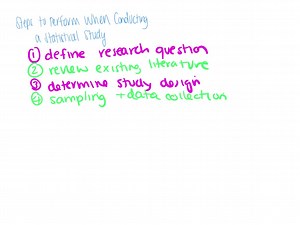 Steps to Perform When Conducting
a Statistical Study
① define research question
② review existing literature
③ determine study design
④ sampling + data collection